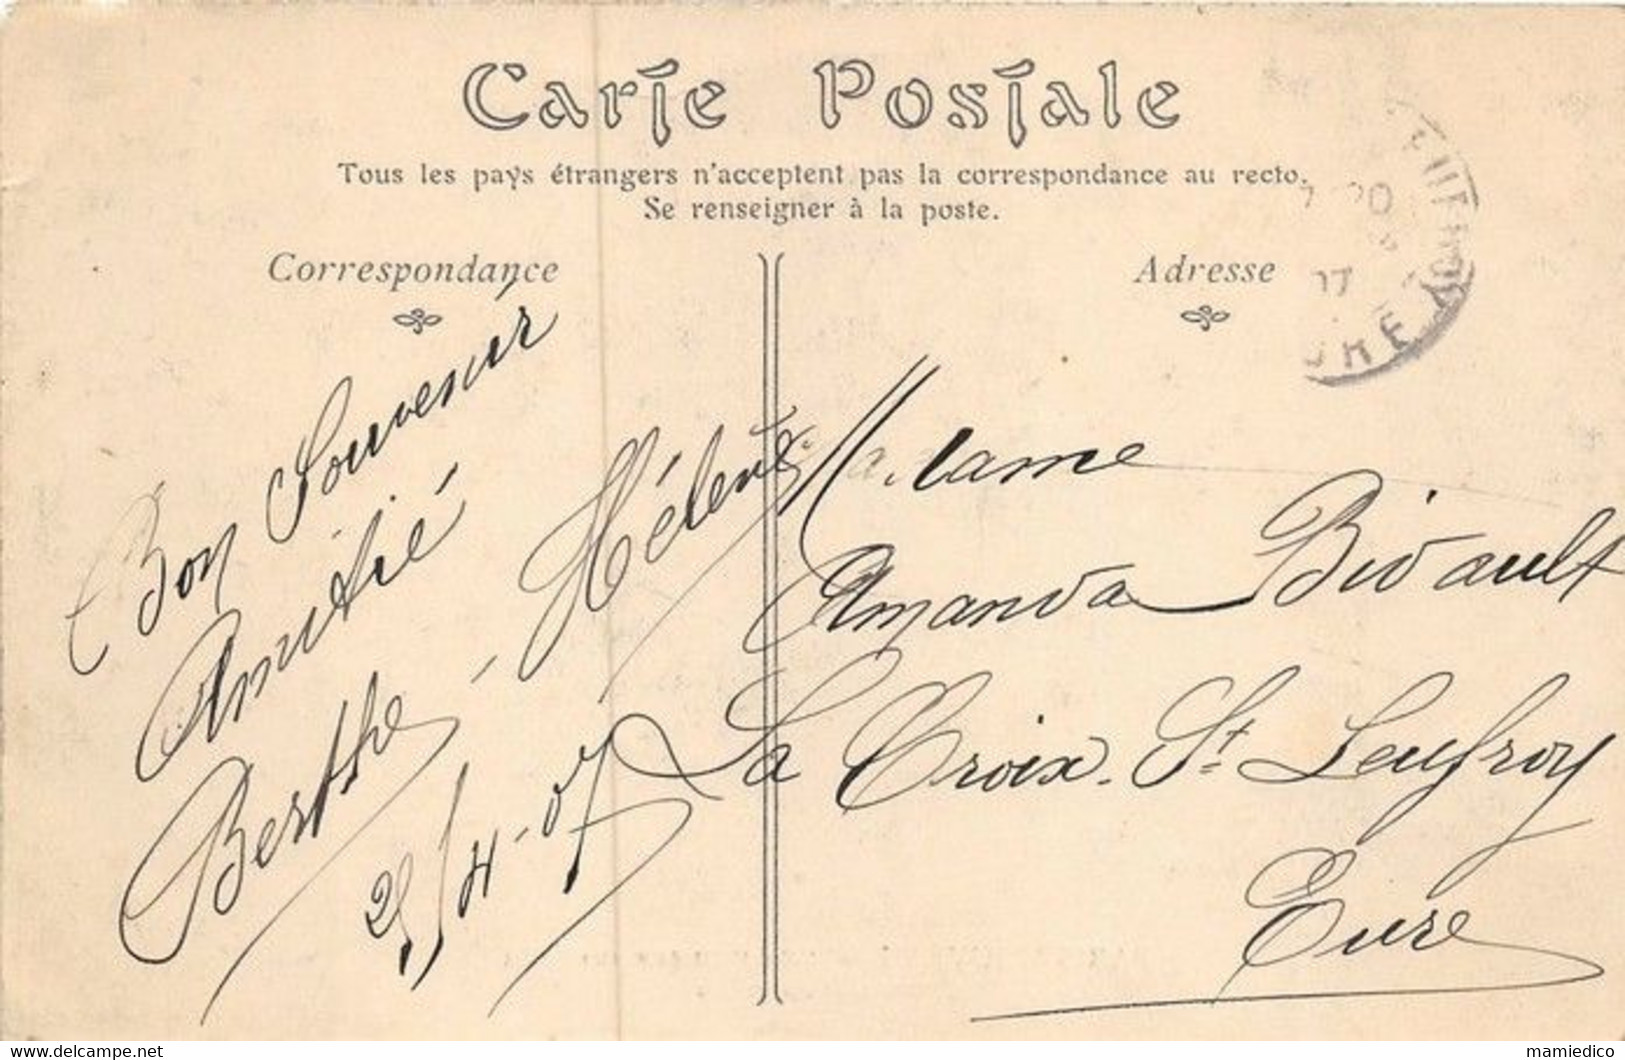 Carte Postale
Tous les pays étrangers n'acceptent pas la correspondance au recto.
Se renseigner à la poste.
Correspondance
Bon Souvenir
Amitié
Berthe - Hélène
25/4-07
Adresse
Madame
Amanda Bidault
La Croix St Leufroy
Eure
20
07
EURE
delcampe.net
mamiedico